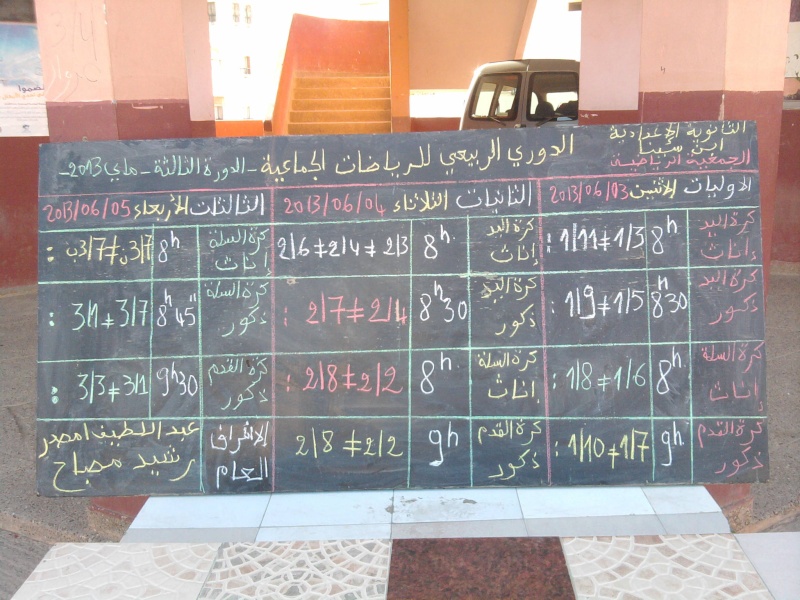 الثانوية الإعدادية
ابن سينا
الجمعية الرياضية
الدوري الربيعي للرياضات الجماعية - الدورة الثالثة - ماي 2013 -
الأوليات الاثنين 2013/06/03
الثانيات الثلاثاء 2013/06/04
الثالثات الأربعاء 2013/06/05
كرة اليد إناث 8h 1/11 ≠ 1/3 :
كرة اليد إناث 8h 2/6 ≠ 2/4 ≠ 2/3
كرة السلة إناث 8h 3/7 ≠ 3/7ب :
كرة اليد ذكور 8h30 1/9 ≠ 1/5 :
كرة اليد ذكور 8h30 2/7 ≠ 2/4 :
كرة السلة ذكور 8h45 3/1 ≠ 3/7 :
كرة السلة إناث 8h 1/8 ≠ 1/6 :
كرة السلة إناث 8h 2/8 ≠ 2/2 :
كرة القدم ذكور 9h30 3/3 ≠ 3/1 :
كرة القدم ذكور 9h 1/10 ≠ 1/7 :
كرة القدم ذكور 9h 2/8 ≠ 2/2 :
الإشراف العام
عبد اللطيف امصدر
رشيد مصباح